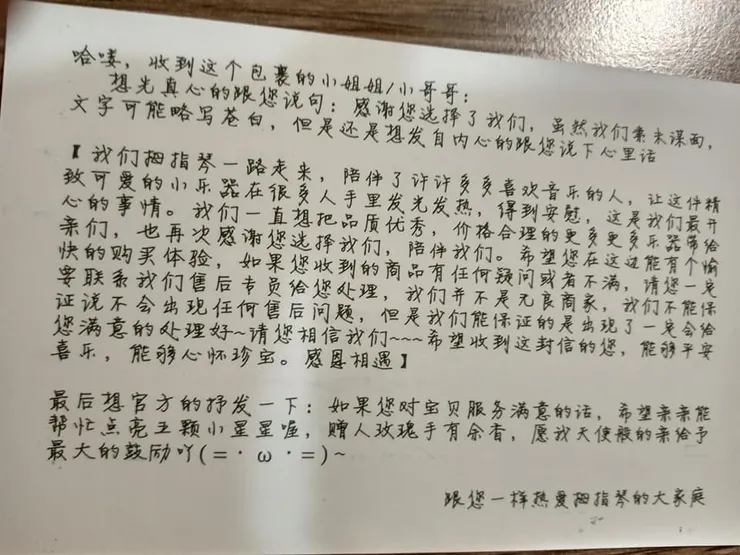 哈喽，收到这个包裹的小姐姐/小哥哥：
想先真心的跟您说句：感谢您选择了我们，虽然我们素未谋面，
文字可能略写苍白，但是还是想发自内心的跟您说下心里话
【我们拇指琴一路走来，陪伴了许许多多喜欢音乐的人，让这件精
致可爱的小乐器在很多人手里发光发热，得到安慰，这是我们最开
心的事情。我们一直想把品质优秀，价格合理的更多更多乐器带给
亲们，也再次感谢您选择我们，陪伴我们。希望您在这边能有个愉
快的购买体验，如果您收到的商品有任何疑问或者不满，请您一定
要联系我们售后专员给您处理，我们并不是无良商家，我们不能保
证说不会出现任何售后问题，但是我们能保证的是出现了一定会给
您满意的处理好~请您相信我们~~~希望收到这封信的您，能够平安
喜乐，能够心怀珍宝。感恩相遇】
最后想官方的抒发一下：如果您对宝贝服务满意的话，希望亲亲能
帮忙点亮五颗小星星喔，赠人玫瑰手有余香，愿我天使般的亲给予
最大的鼓励吖(=·ω·=)~
跟您一样热爱拇指琴的大家庭